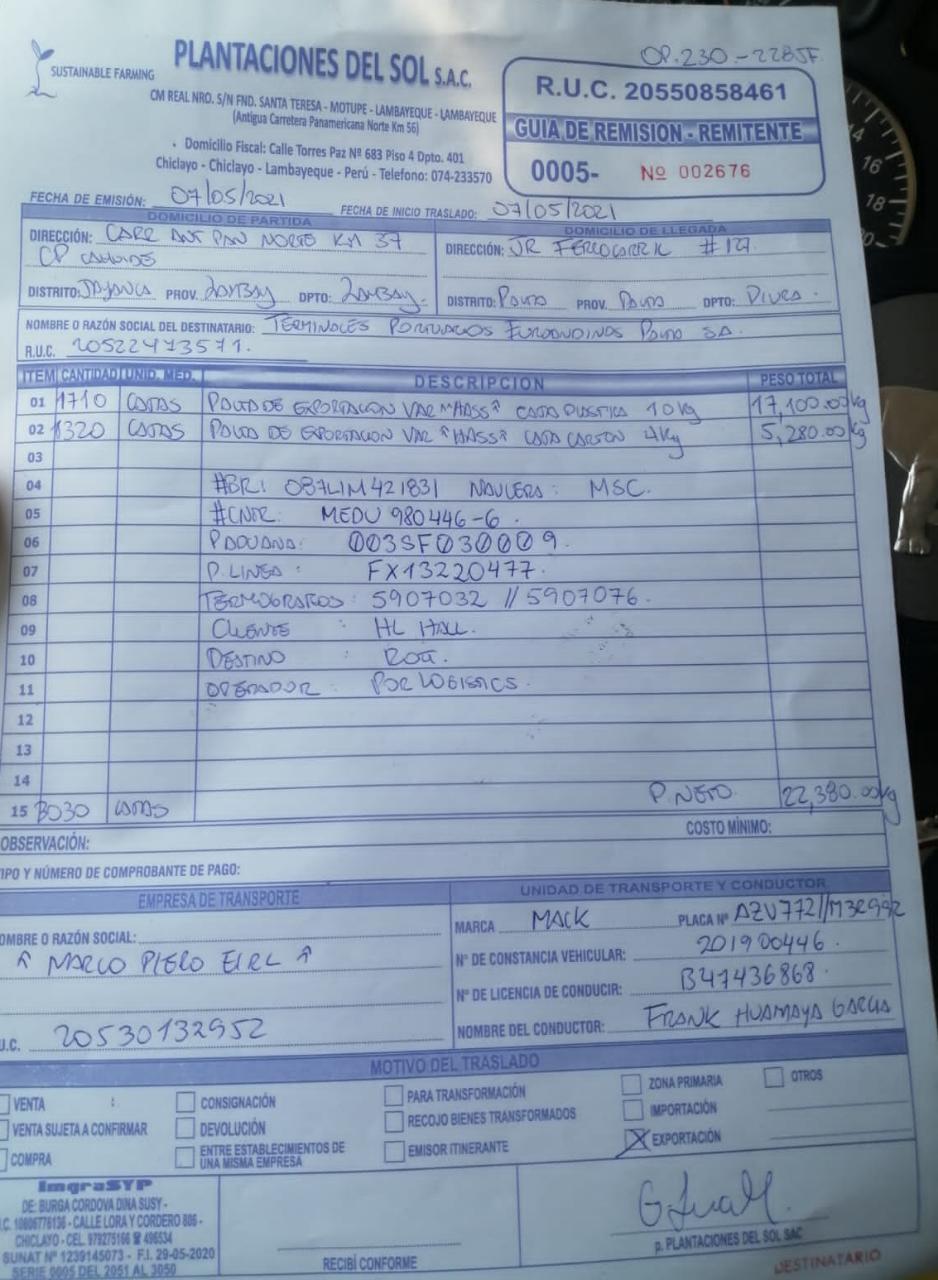 OP.230.-22BSF
SUSTAINABLE FARMING
PLANTACIONES DEL SOL S.A.C.
CM REAL NRO. S/N FND. SANTA TERESA - MOTUPE - LAMBAYEQUE - LAMBAYEQUE
(Antigua Carretera Panamericana Norte Km 56)
Domicilio Fiscal: Calle Torres Paz Nº 683 Piso 4 Dpto. 401
Chiclayo - Chiclayo - Lambayeque - Perú - Telefono: 074-233570
R.U.C. 20550858461
GUIA DE REMISION - REMITENTE
0005- Nº 002676
FECHA DE EMISIÓN: 07/05/2021 FECHA DE INICIO TRASLADO: 07/05/2021
DOMICILIO DE PARTIDA
DIRECCIÓN: CARR ANT PAN NORTE KM 37
CP
DISTRITO: JAYANCA PROV. LAMBAY DPTO: LAMBAY.
DOMICILIO DE LLEGADA
DIRECCIÓN: JR FERROCARRIL #127
DISTRITO: PAITA PROV. PAITA DPTO: PIURA.
NOMBRE O RAZÓN SOCIAL DEL DESTINATARIO: TERMINALES PORTUARIOS EUROANDINOS PAITA SA.
R.U.C. 20522473571.
ITEM CANTIDAD UNID. MED. DESCRIPCION PESO TOTAL
01 1710 CAJAS PALTA DE EXPORTACION VAR "HASS" CAJA PLASTICA 10kg 17,100.00kg
02 1320 CAJAS PALTA DE EXPORTACION VAR "HASS" CAJA CARTON 4kg 5,280.00kg
03
04 #BK: 087LIM421831 NAVIERA: MSC.
05 #CNTR: MEDU 980446-6.
06 P.ADUANA: 003SF030009.
07 P.LINEA: FX13220477.
08 TERMOGRAFOS: 5907032 // 5907076.
09 CLIENTE : HL HALL.
10 DESTINO : ROTT.
11 OPERADOR : POR LOGISTICS.
12
13
14
P.NETO. 22,380.00kg
15 3030 CAJAS
COSTO MÍNIMO:
OBSERVACIÓN:
TIPO Y NÚMERO DE COMPROBANTE DE PAGO:
EMPRESA DE TRANSPORTE
OMBRE O RAZÓN SOCIAL:
" MARCO PIERO EIRL "
U.C. 20530132952
UNIDAD DE TRANSPORTE Y CONDUCTOR
MARCA MACK PLACA Nº AZV772//M3R992
N° DE CONSTANCIA VEHICULAR: 201900446.
N° DE LICENCIA DE CONDUCIR: B47436868.
NOMBRE DEL CONDUCTOR: FRANK HUAMAYA GARCIA
MOTIVO DEL TRASLADO
VENTA
VENTA SUJETA A CONFIRMAR
COMPRA
CONSIGNACIÓN
DEVOLUCIÓN
ENTRE ESTABLECIMIENTOS DE
UNA MISMA EMPRESA
PARA TRANSFORMACIÓN
RECOJO BIENES TRANSFORMADOS
EMISOR ITINERANTE
ZONA PRIMARIA
IMPORTACIÓN
EXPORTACIÓN
OTROS
ImgraSYP
DE: BURGA CORDOVA DINA SUSY -
.C. 10806776136 - CALLE LORA Y CORDERO 886 -
CHICLAYO - CEL. 979275166 ☎ 496534
SUNAT Nº 1239145073 - F.I. 29-05-2020
SERIE 0005 DEL 2051 AL 3050
RECIBÍ CONFORME
p. PLANTACIONES DEL SOL SAC
DESTINATARIO
14
16
18